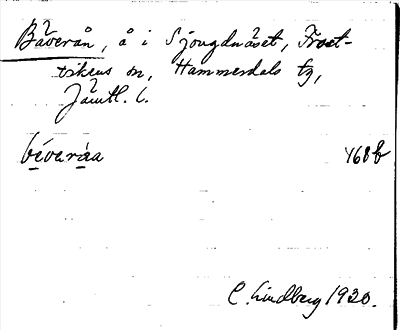 Bäverån, å i Sjougdnäset, Frost-
vikens sn, Hammerdals tg,
Jämtl. l.
béveråa 468 b
C. Lindberg 1930.